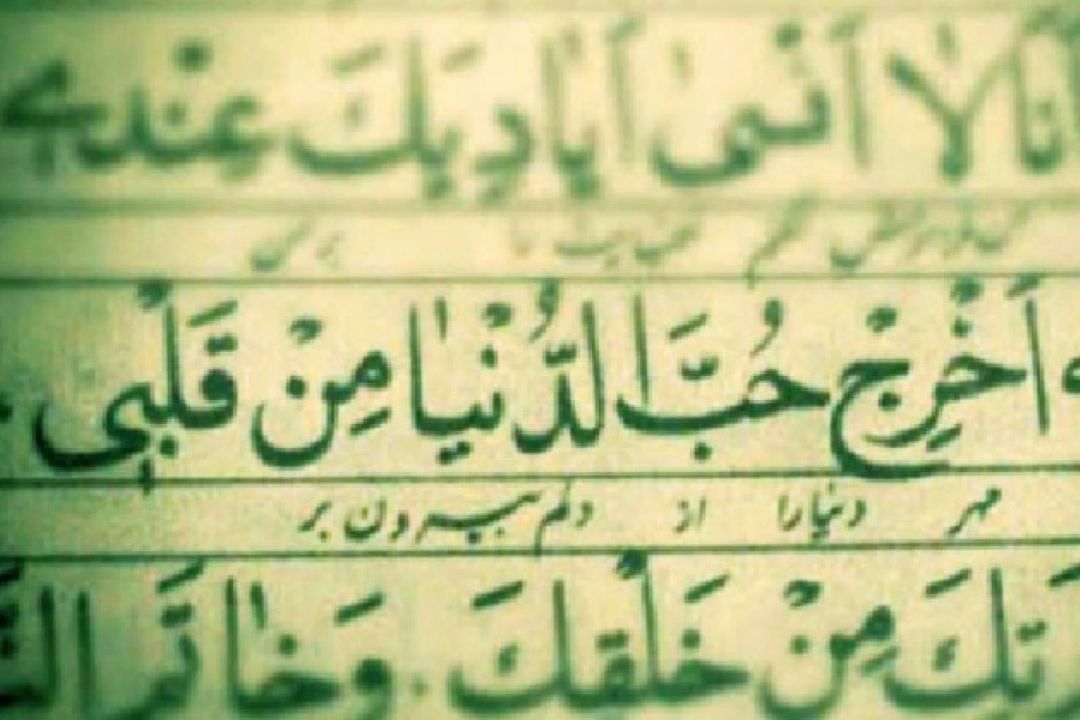 اَنَا لا اَنْسیٰ اَیادِیَكَ عِنْدی
وَ اَخْرِجْ حُبَّ الدُّنْیٰا مِنْ قَلْبی
مهر دنیا را از دلم بیرون بر
رَتِكَ مِنْ خَلْقِكَ . وَخٰاتَمِ